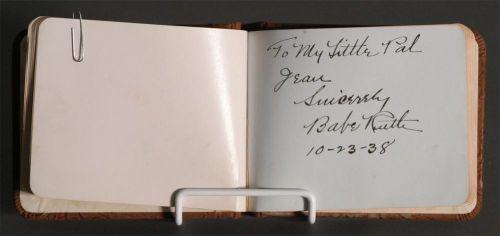 To My Little Pal
Jean
Sincerely
Babe Ruth
10-23-38